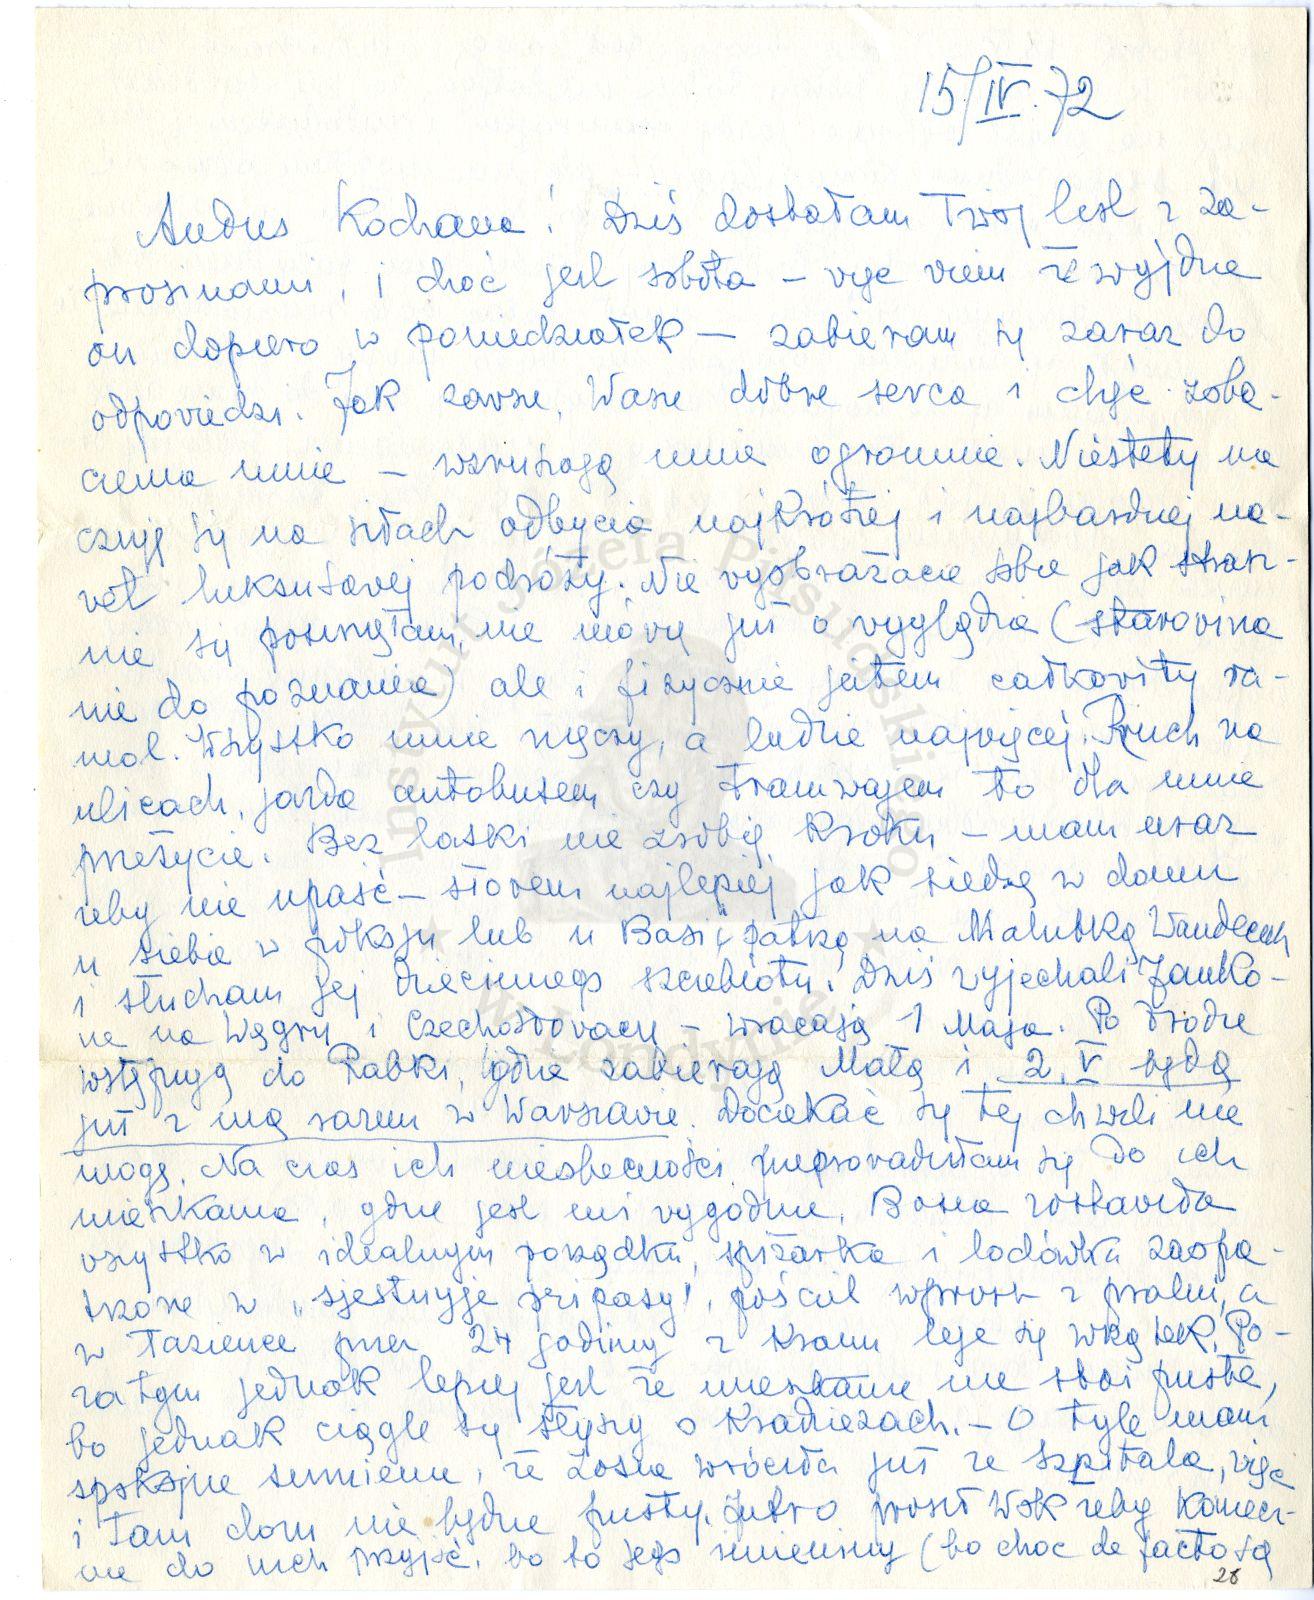 15/IV.72
Anduś Kochana! Dziś dostałam Twój list z za-
prosinami, i choć jest sobota – więc wiem że wyjdzie
on dopiero w poniedziałek – zabieram się zaraz do
odpowiedzi. Jak zawsze, Wasze dobre serca i chęć zoba-
czenia mnie – wzruszają mnie ogromnie. Niestety nie
czuję się na siłach odbycia najkrótszej i najbardziej na-
wet luksusowej podróży. Nie wyobrażacie sobie jak strasz-
nie się posunęłam, nie mówię już o wyglądzie (starowina
nie do poznania) ale i fizycznie jestem całkowity ra-
mol. Wszystko mnie męczy, a ludzie najwięcej. Ruch na
ulicach, jazda autobusem czy tramwajem to dla mnie
przeżycie. Bez laski nie zrobię kroku – mam uraz
żeby nie upaść – słowem najlepiej jak siedzę w domu
u siebie w pokoju lub u Basi, patrzę na Malutką Wandeczkę
i słucham jej dziecinnego szczebiotu. Dziś wyjechali Janko-
we na Węgry i Czechosłowację – wracają 1 Maja. Po drodze
wstępują do Rabki, gdzie zabierają Małą i 2.V będą
już z nią razem w Warszawie. Doczekać się tej chwili nie
mogę. Na czas ich nieobecności przeprowadziłam się do ich
mieszkania, gdzie jest mi wygodnie. Basia zostawiła
wszystko w idealnym porządku, spiżarka i lodówka zaopa-
trzone w „sjestnyje pripasy", pościel wprost z pralni, a
w łazience przez 24 godziny z kranu leje się wrzątek. Po-
za tym jednak lepiej jest że mieszkanie nie stoi puste,
bo jednak ciągle się słyszy o kradzieżach. – O tyle mam
spokojne sumienie, że Zosia wróciła już ze szpitala, więc
i tam dom nie będzie pusty. Jutro prosił Wok żeby koniecz-
nie do nich przyjść, bo to jego imieniny (bo choć de facto są
28
Instytut Józefa Piłsudskiego
w Londynie